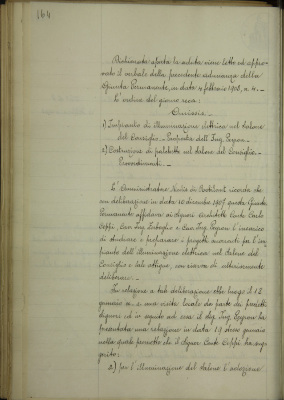 164
Dichiarata aperta la seduta viene letto ed appro-
vato il verbale della precedente adunanza della
Giunta Permanente, in data 4 febbraio 1908, n. 4. _
L'ordine del giorno reca:
Ordinaria. _
1) Impianto di illuminazione elettrica nel Salone
del Consiglio. _ Proposta dell'Ing. Pagani. _
2) Costruzione di palchetti nel Salone del Consiglio. _
Provvedimenti. _
L' Amministratore ricorda che
con deliberazione in data 10 dicembre 1907 questa Giunta
Permanente affidava ai Signori Architetti Conte Carlo
Ceppi, Cav. Ing. e Cav. Ing. l'incarico
di studiare e preparare i progetti occorrenti per l'im-
pianto dell'illuminazione elettrica nel Salone del
Consiglio e sale attigue, con riserva di ulteriormente
deliberare. _
In relazione a tale deliberazione ebbe luogo il 12
gennaio u. s. una visita locale da parte dei predetti
Signori ed in seguito ad essa il Sig. Ing. ha
presentato una relazione in data 19 stesso gennaio
nella quale premette che il Signor Conte Ceppi ha sug-
gerito:
a) per l'illuminazione del Salone l'adozione